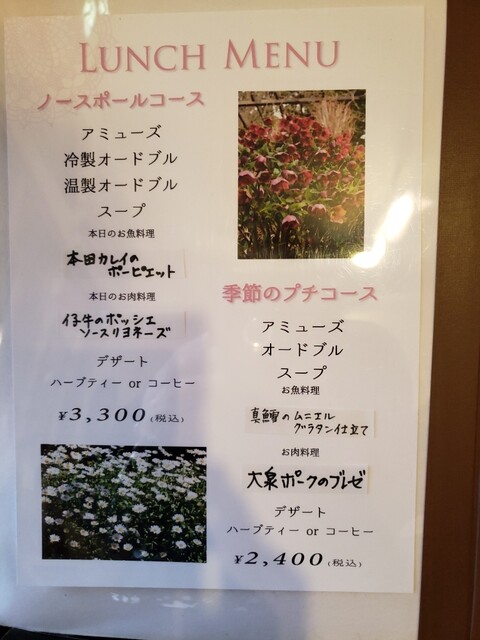 LUNCH MENU
ノースポールコース
アミューズ
冷製オードブル
温製オードブル
スープ
本日のお魚料理
本田カレイの
ポーピエット
本日のお肉料理
仔牛のポッシェ
ソースリヨネーズ
デザート
ハーブティー or コーヒー
¥3,300(税込)
季節のプチコース
アミューズ
オードブル
スープ
お魚料理
真鱈のムニエル
グラタン仕立て
お肉料理
大泉ポークのブレゼ
デザート
ハーブティー or コーヒー
¥2,400(税込)